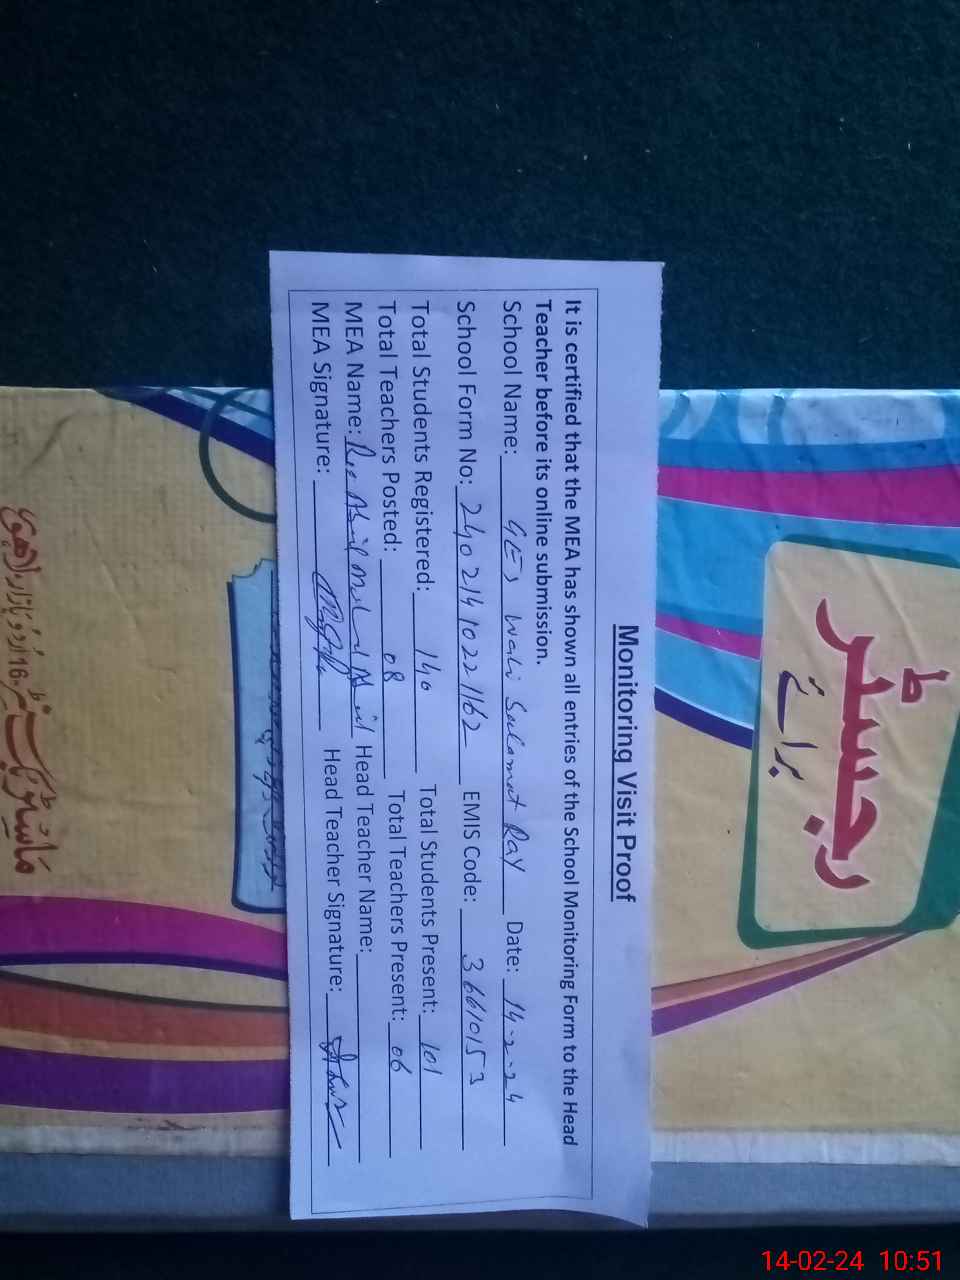 Monitoring Visit Proof
It is certified that the MEA has shown all entries of the School Monitoring Form to the Head
Teacher before its online submission.
School Name: GES Wali Salamat Ray Date: 14-2-24
School Form No: 24021410221162 EMIS Code: 36610153
Total Students Registered: 140 Total Students Present: 101
Total Teachers Posted: 08 Total Teachers Present: 06
MEA Name: Head Teacher Name:
MEA Signature: Head Teacher Signature:
رجسٹر
برائے
14-02-24 10:51